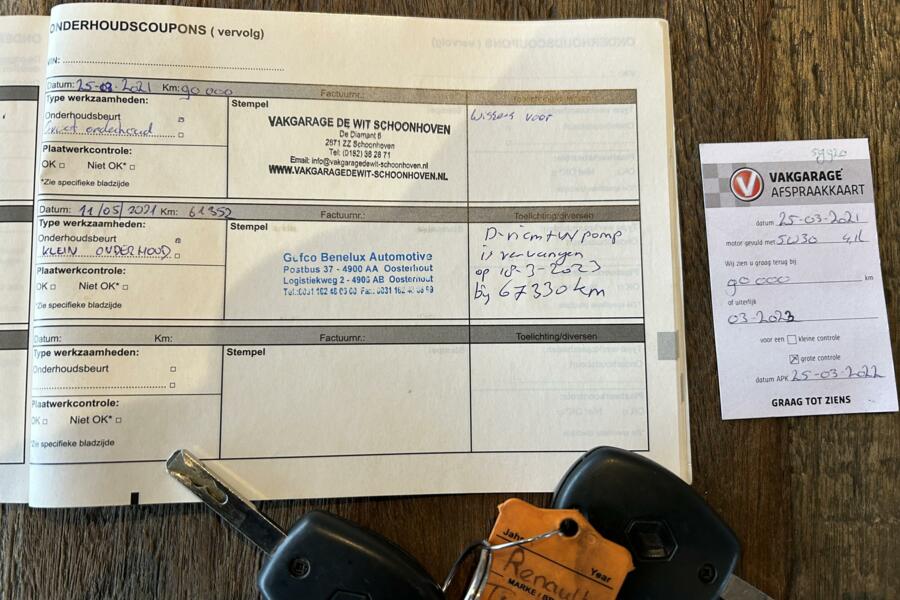 ONDERHOUDSCOUPONS ( vervolg)
VIN:
Datum: 25-03-2021 Km: 90 000 Factuurnr.:
Type werkzaamheden: Stempel
Onderhoudsbeurt
onderhoud
Plaatwerkcontrole:
OK Niet OK*
*Zie specifieke bladzijde
VAKGARAGE DE WIT SCHOONHOVEN
De Diamant 6
2871 ZZ Schoonhoven
Tel: (0182) 38 28 71
Email: info@vakgaragedewit-schoonhoven.nl
WWW.VAKGARAGEDEWIT-SCHOONHOVEN.NL
voor
Datum: 11/05/2021 Km: 61352 Factuurnr.: Toelichting/diversen
Type werkzaamheden: Stempel
Onderhoudsbeurt
KLEIN ONDERHOUD
Plaatwerkcontrole:
OK Niet OK*
*Zie specifieke bladzijde
Gefco Benelux Automotive
Postbus 37 - 4900 AA Oosterhout
Logistiekweg 2 - 4906 AB Oosterhout
D-riem+W/pomp
is vervangen
op 18-3-2023
bij 67330 km
Datum: Km: Factuurnr.: Toelichting/diversen
Type werkzaamheden: Stempel
Onderhoudsbeurt
Plaatwerkcontrole:
OK Niet OK*
*Zie specifieke bladzijde
VAKGARAGE
AFSPRAAKKAART
datum 25-03-2021
motor gevuld met 5W30 4,1L
Wij zien u graag terug bij
90 000 km
of uiterlijk
03-2023
voor een kleine controle
grote controle
datum APK 25-03-2022
GRAAG TOT ZIENS
Year
Renault